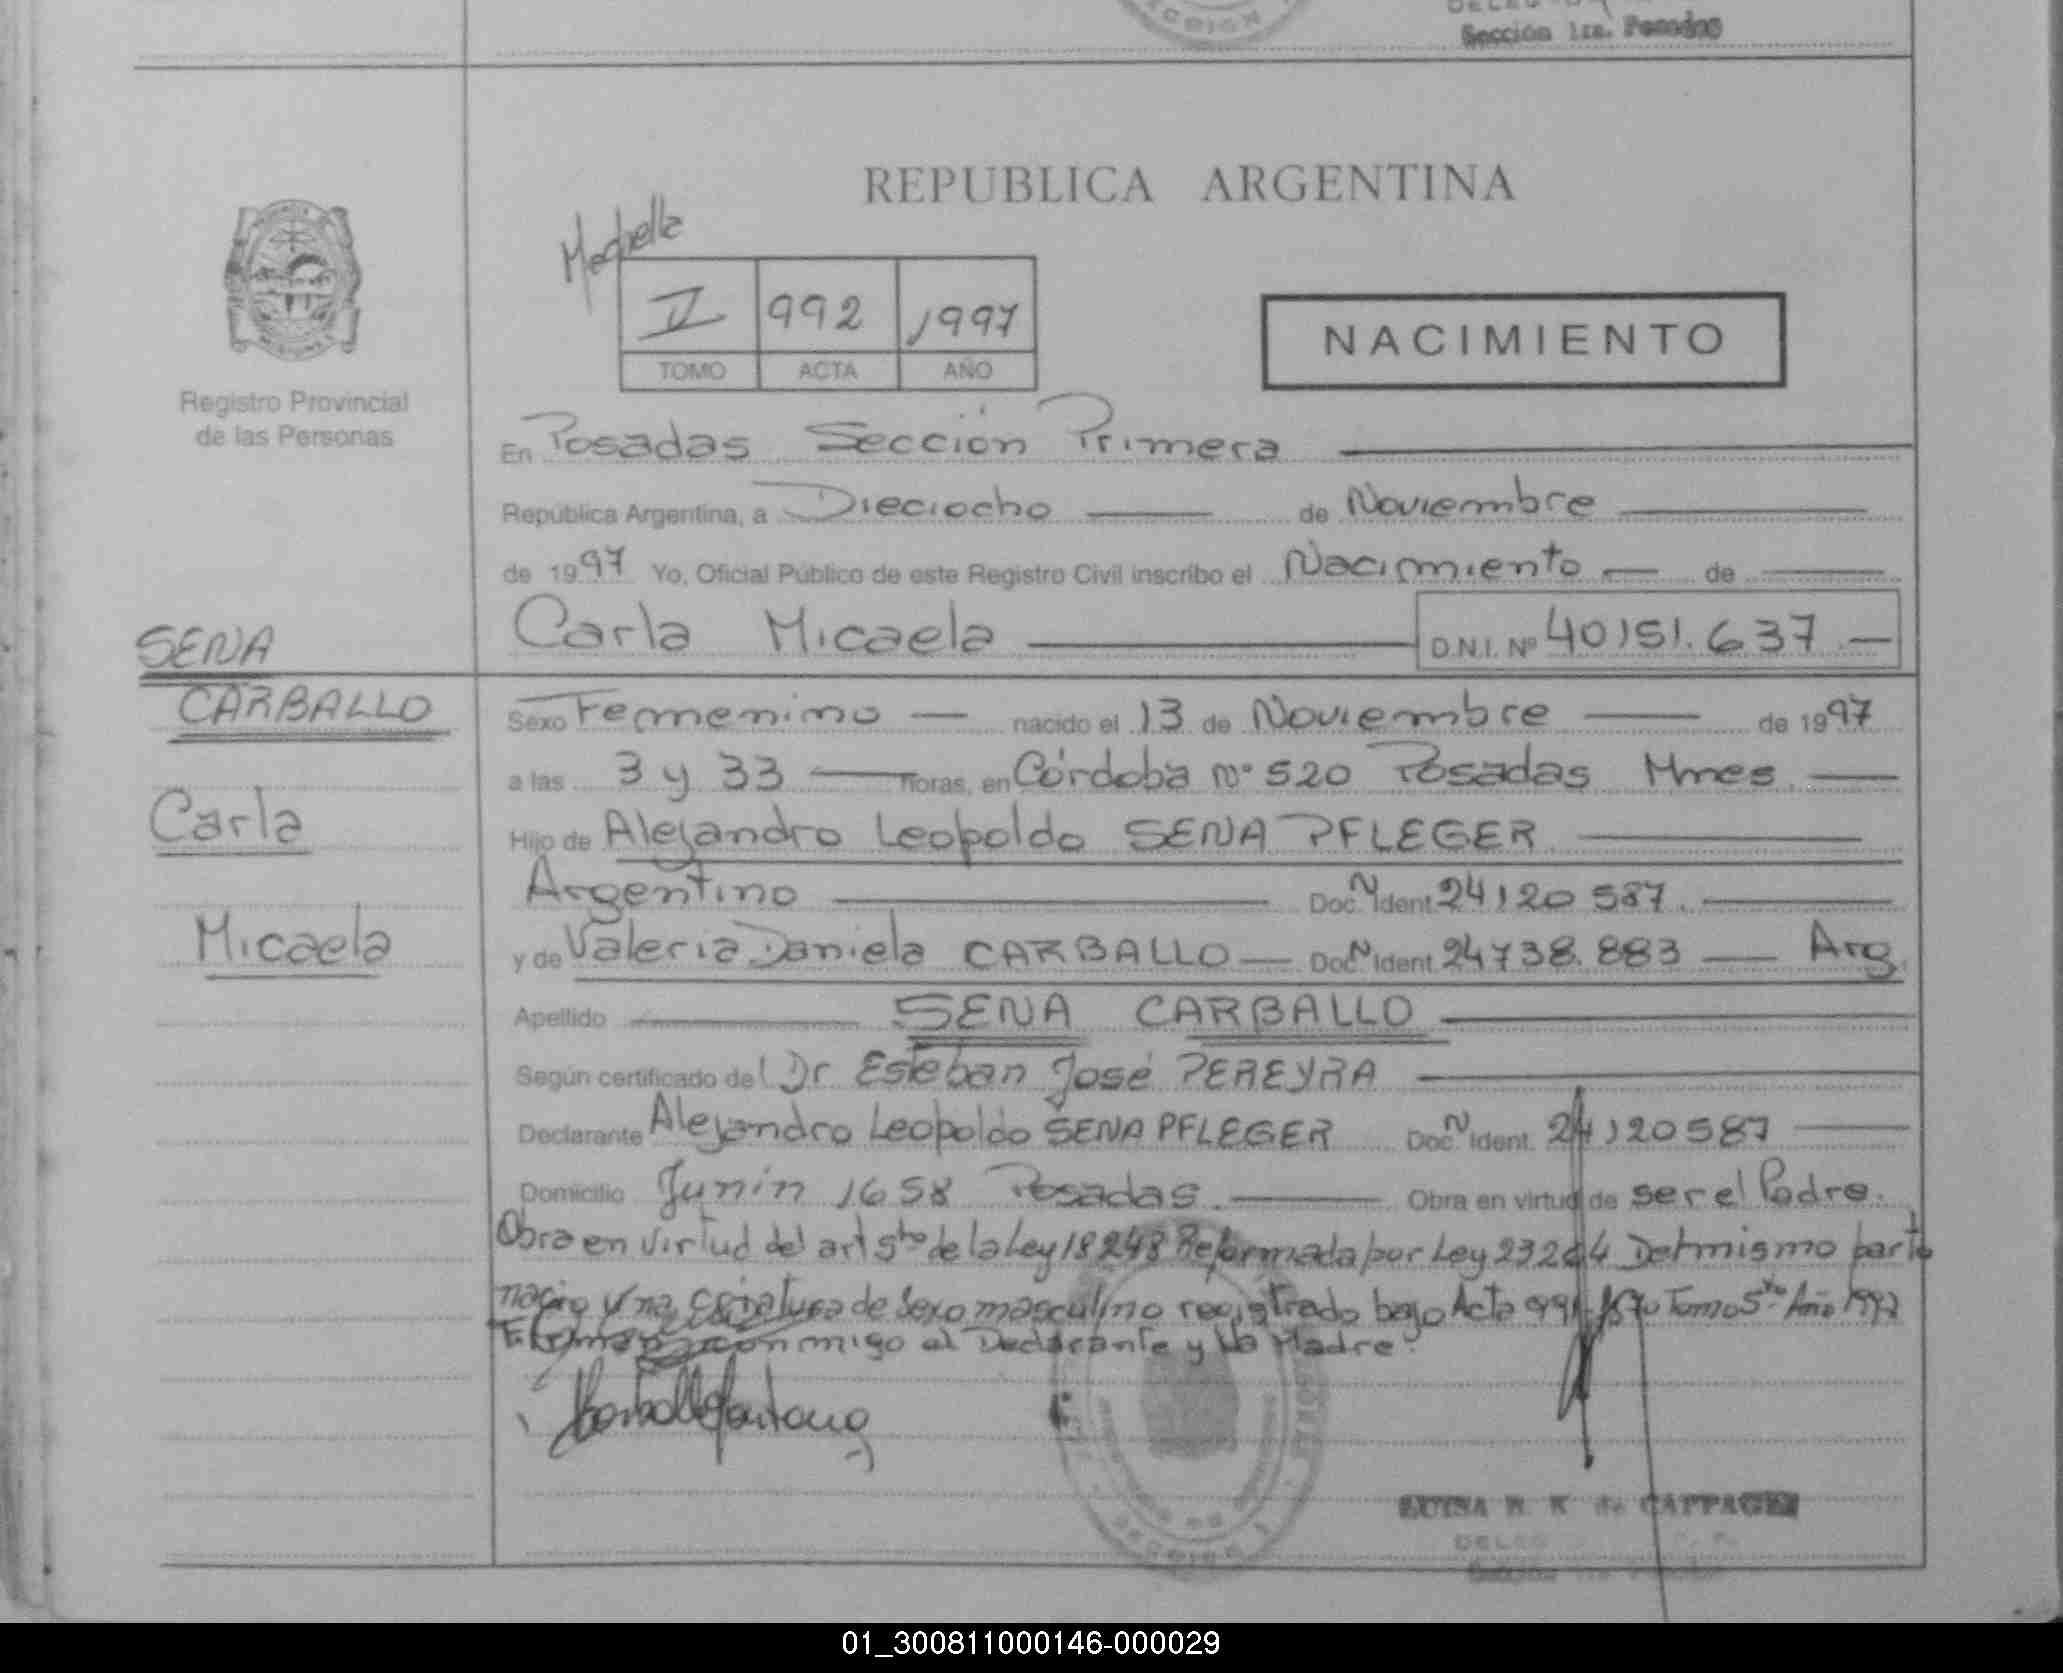 Sección 1ra. Posadas
REPUBLICA ARGENTINA
V 992 1997
TOMO ACTA AÑO
NACIMIENTO
Registro Provincial
de las Personas
En Posadas Sección Primera
República Argentina, a Dieciocho de Noviembre
de 1997 Yo, Oficial Público de este Registro Civil inscribo el Nacimiento de
Carla Micaela D.N.I. Nº 40151.637.
SENA
CARBALLO
Carla
Micaela
Sexo Femenino nacido el 13 de Noviembre de 1997
a las 3 y 33 horas, en Córdoba nº 520 Posadas Mnes.
Hijo de Alejandro Leopoldo SENA PFLEGER
Argentino Doc. N Ident. 24120 587.
y de Valeria Daniela CARBALLO Doc. N Ident. 24738.883 Arg.
Apellido SENA CARBALLO
Según certificado del Dr Esteban José PEREYRA
Declarante Alejandro Leopoldo SENA PFLEGER Doc. N Ident. 24120587
Domicilio Junín 1658 Posadas. Obra en virtud de ser el Padre.
Obra en virtud del art 5to de la Ley 18248 Reformada por Ley 23264 Del mismo parto
nacio una criatura de sexo masculino registrado bajo Acta 991 Tomo 5to Año 1997
Firman conmigo el Declarante y la Madre.
LUISA
01_300811000146-000029